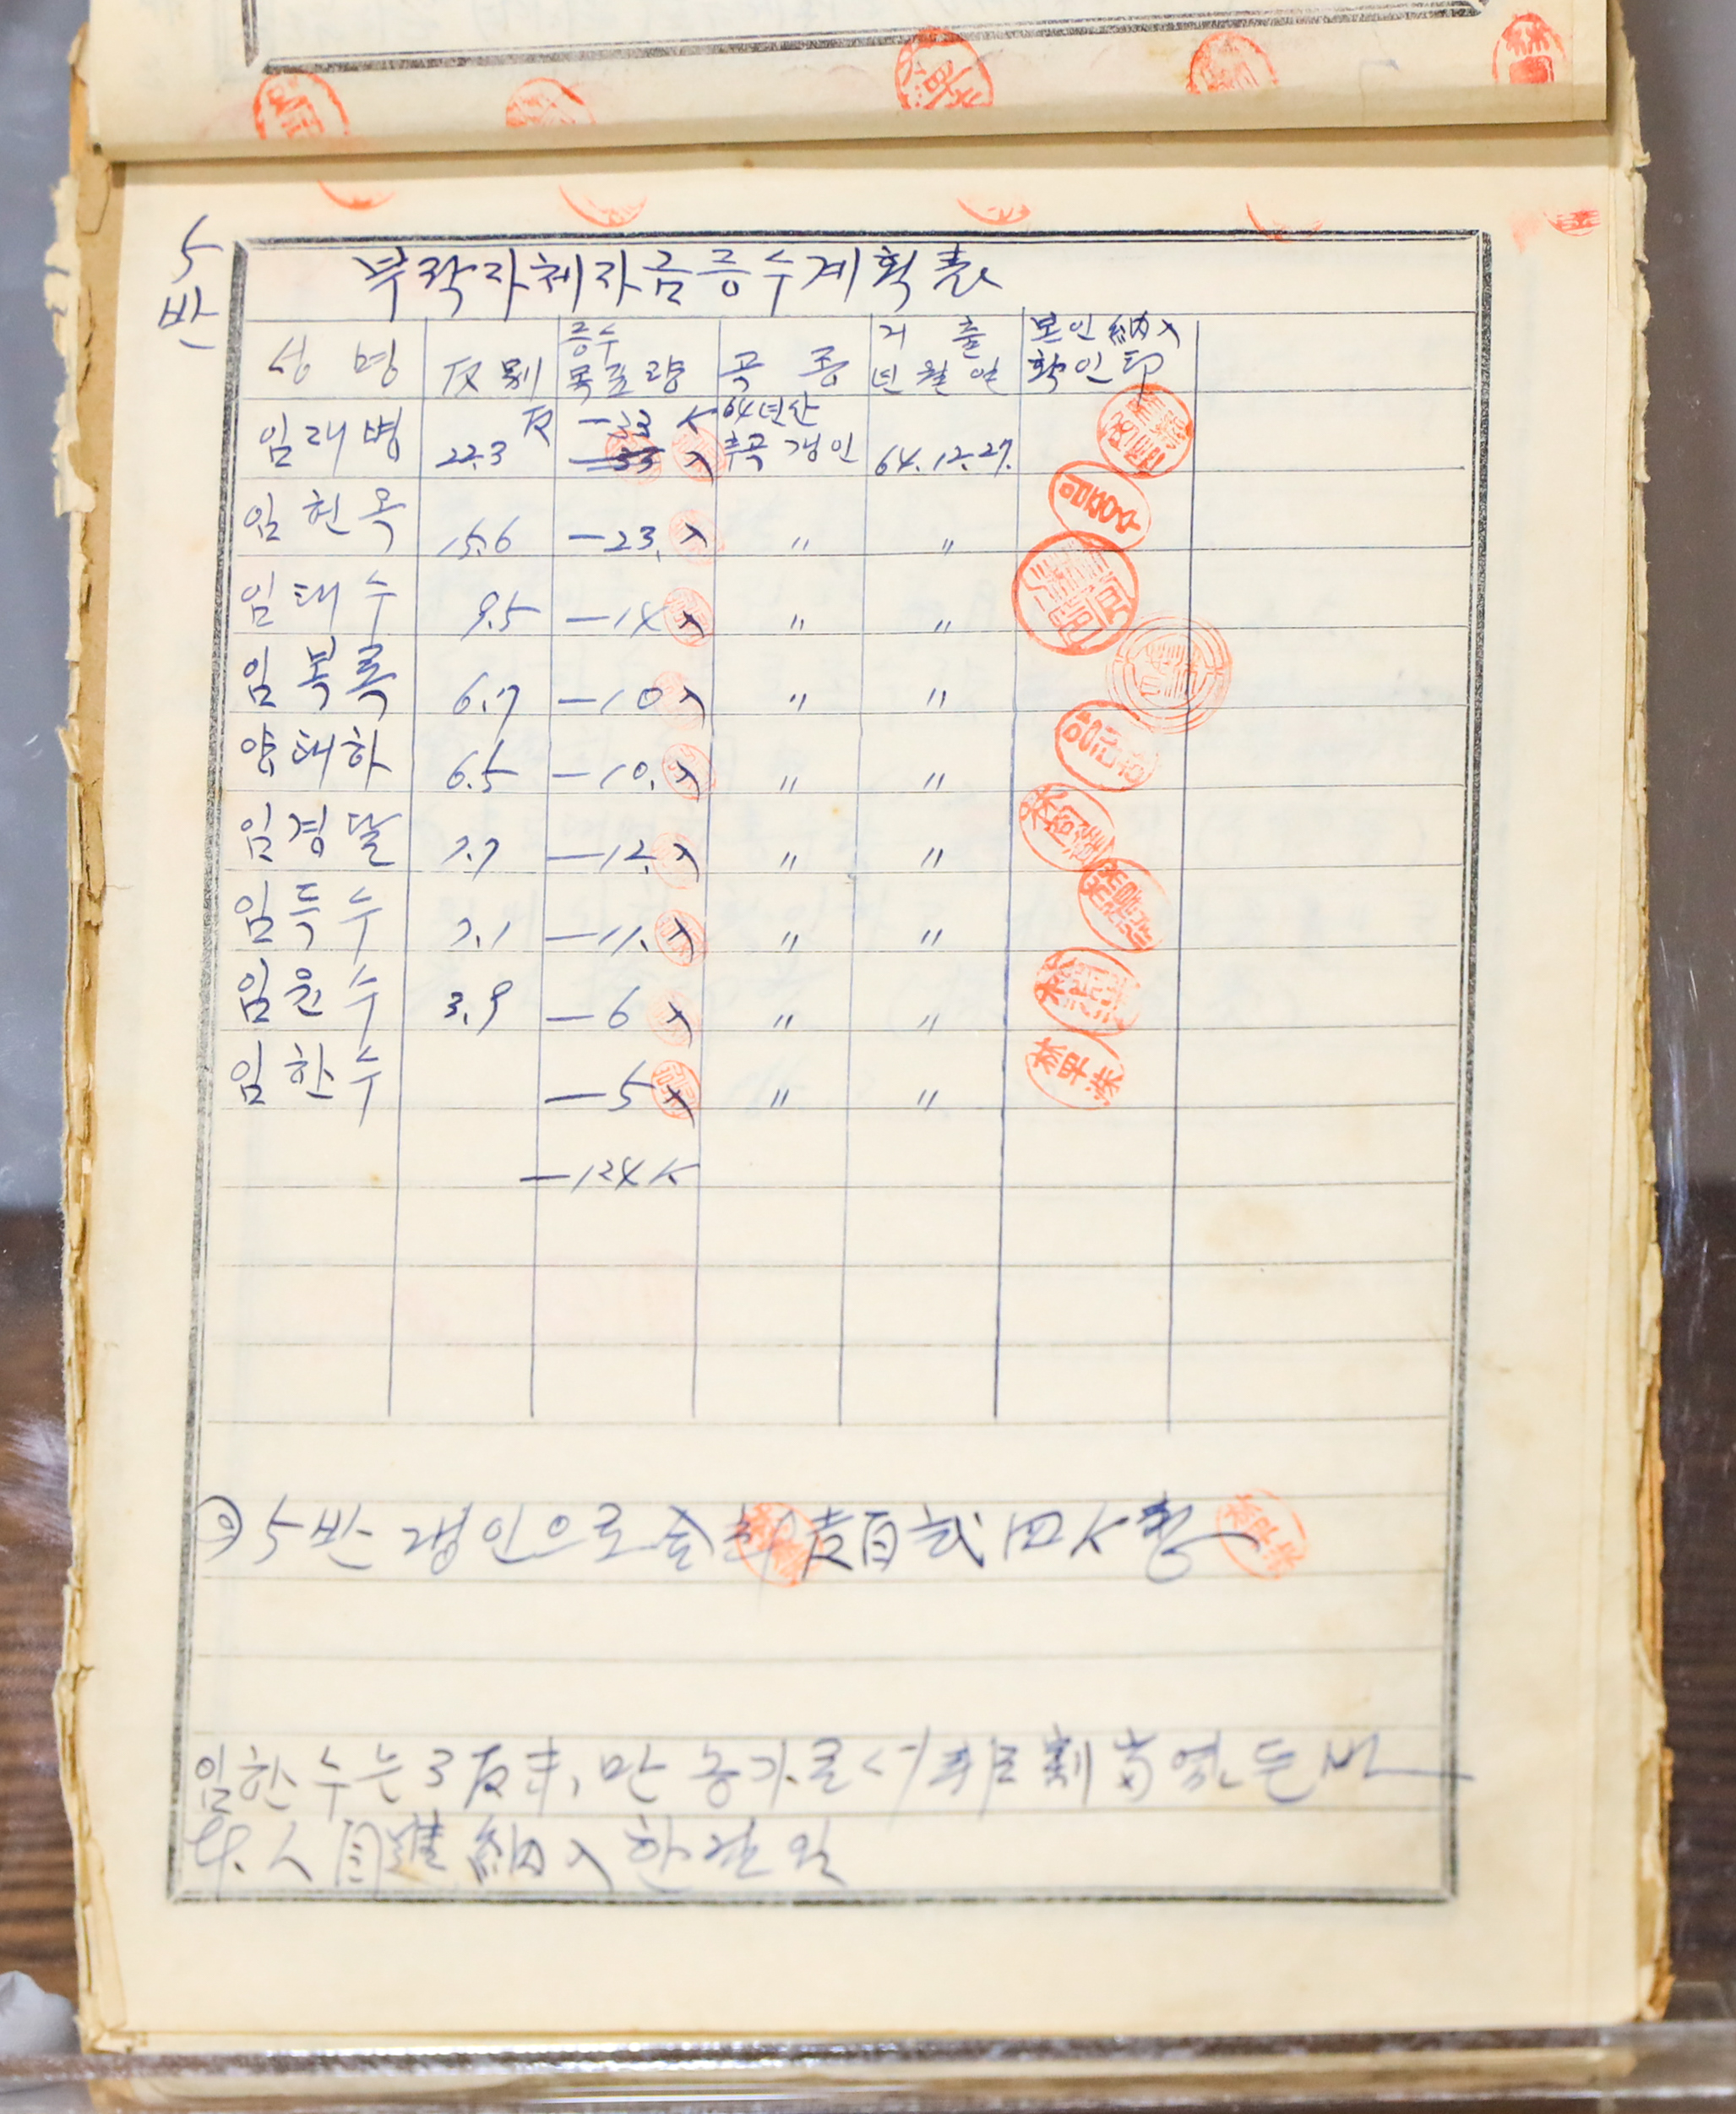 5
반
부락자체자금증수계획表
성 명 反別 증수 목표량 곡 종 거 출 년 월 일 본인 納入 확인 印
임래병 22.3 反 -33 64년산 추곡 갱인 64.12.27.
임헌옥 15.6 -23. 〃 〃
임태수 9.5 -14 〃 〃
임복록 6.7 -10 〃 〃
양태하 6.5 -10. 〃 〃
임경달 7.7 -12. 〃 〃
임득수 7.1 -11. 〃 〃
임윤수 3.9 -6 〃 〃
임한수 -5 〃 〃
-124
5반 갱인으로 壱百弐四
임한수는 3反末,만 농가로서 非割当였든바
本人自進納入한것임